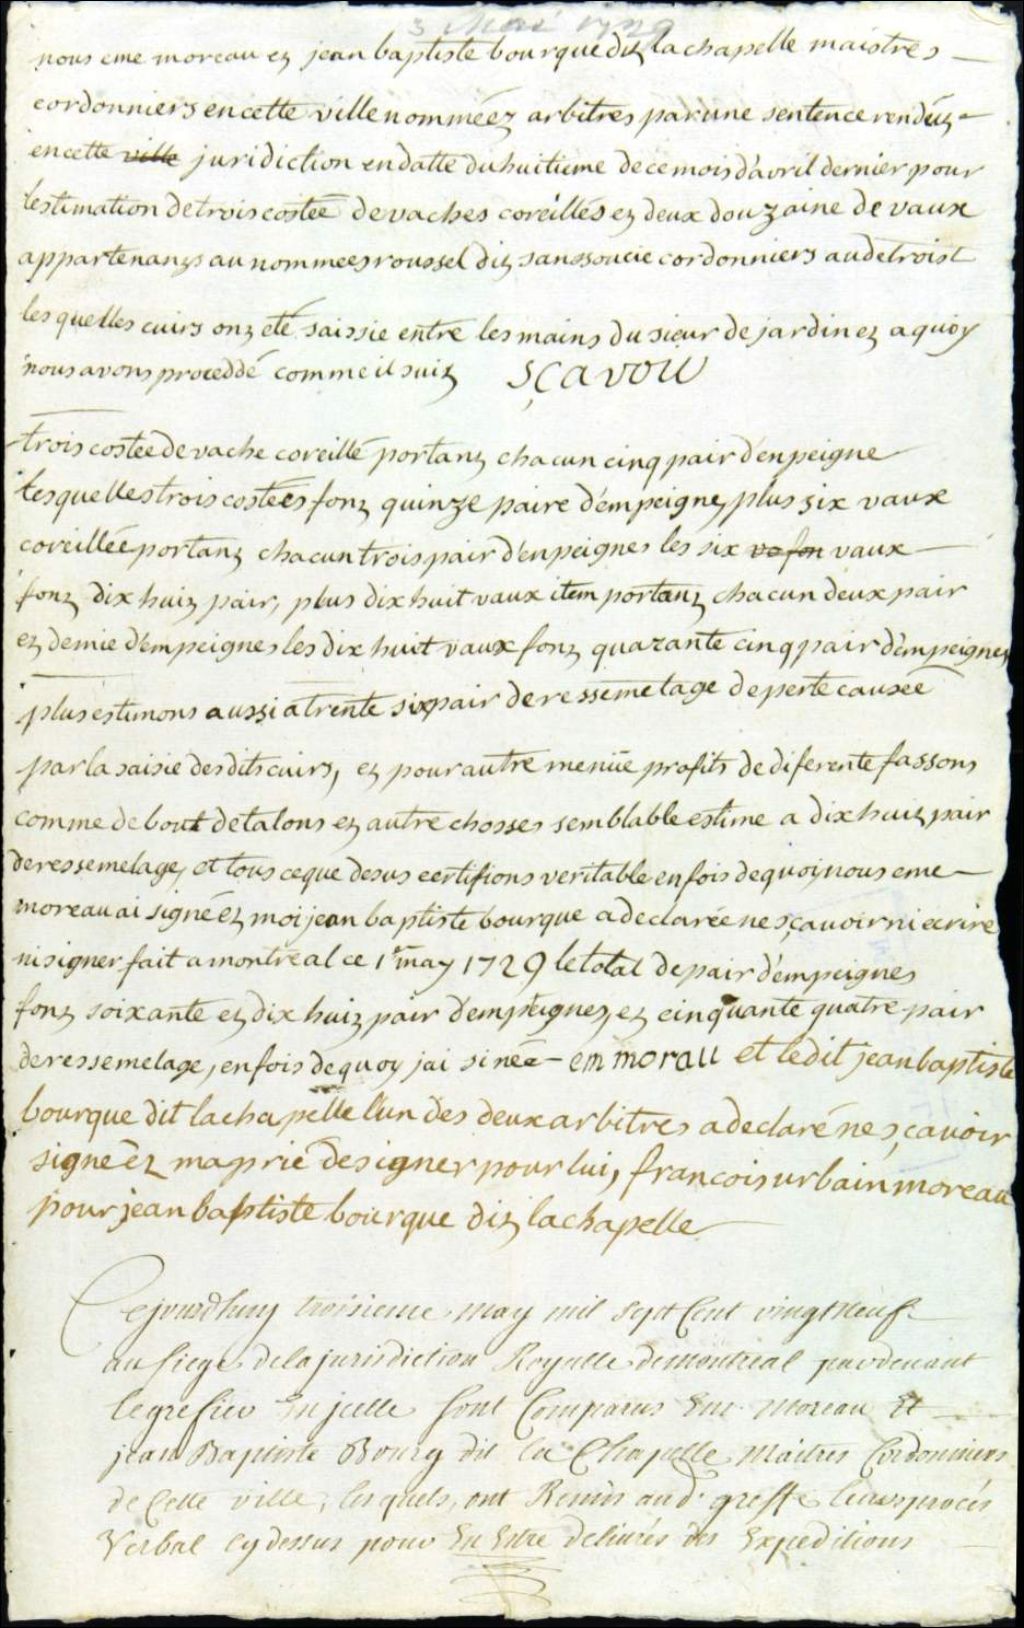 3 May 1729
nous eme moreau ez jean baptiste bourque diz la chapelle maistres
cordonniers en cette ville nommeéz arbitres par une sentence renduz
en cette ville juridiction en datte du huitieme de ce mois d'avril dernier pour
lestimation de trois costeé de vaches coreillés ez deux douzaine de vaux
appartenanzs au nommees roussel diz sanssoucie cordonniers au detroist
les quelles cuirs onz eté saissie entre les mains du sieur de jardinez a quoy
nous avons proceddé comme il suiz sçavoir
trois costee de vache coreillé portanz chacun cinq pair d'enpeigne
lesquelles trois costeés fonz quinze paire d'empeigne, plus six vaux
coreilleé portanz chacun trois pair d'enpeignes les six vo fon vaux
fonz dix huiz pair, plus dix huit vaux item portanz chacun deux pair
ez demie d'empeignes les dix huit vaux fonz quarante cinq pair d'empeignes
plus estimons aussi a trente six pair de ressemelage de perte causeé
par la saisie des dits cuirs, ez pour autre menüe profits de diferente fassons
comme de bout de talons ez autre chosses semblable estime a dix huiz pair
de ressemelage, et tous ce que desus certifions veritable en fois de quoy nous eme
moreau ai signé ez moi jean baptiste bourque a declareé ne sçauoir ni ecrire
ni signer fait a montreal ce 1er may 1729 le total de pair d'empeignes
fonz soixante ez dix huiz pair d'empeignes, ez cinquante quatre pair
de ressemelage, en fois de quoy jai sineé - em morau et ledit jean baptiste
bourque dit la chapelle l'un des deux arbitres a declaré ne sçavoir
signe ez ma prié de signer pour lui, francois urbain moreau
pour jean baptiste bourque diz la chapelle
Cejourdhuy troisieme may mil sept Cent vingt neuf
au siege de la jurisdiction Royalle de montreal pardevant
le grefier En jcelle sont Comparus Eme Moreau Et
jean Baptiste Bourg dit la Chapelle Maitres Cordonniers
de Cette ville, lesquels, ont Remis aud. greffe leurs procés
Verbal Cy dessus pour En Estre deliurés des Expeditions